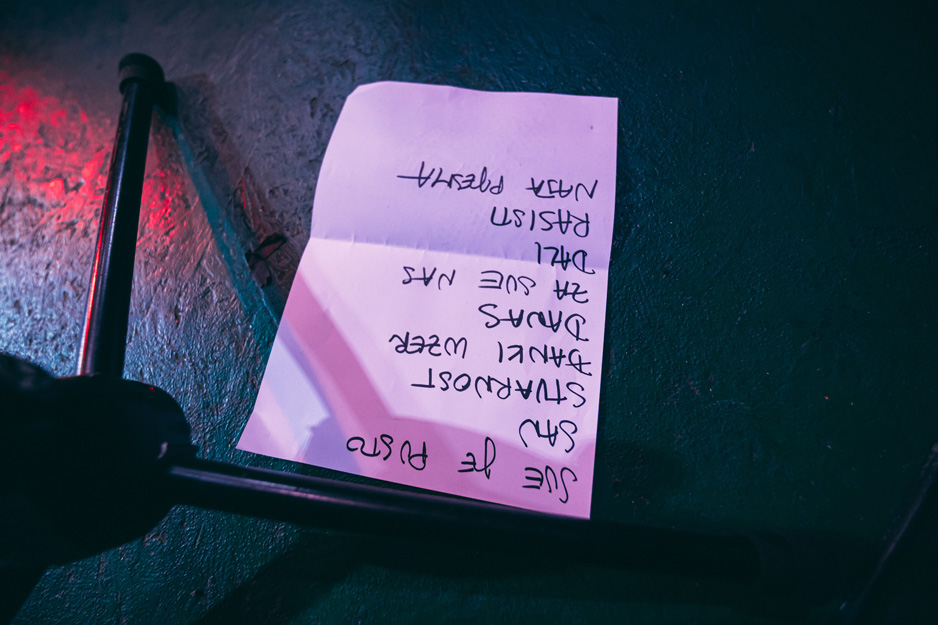 SVE JE PUSTO
SAN
STVARNOST
DANKI WZER
DANAS
ZA SVE NAS
DALI
RASISTI
NAŠA PJESMA